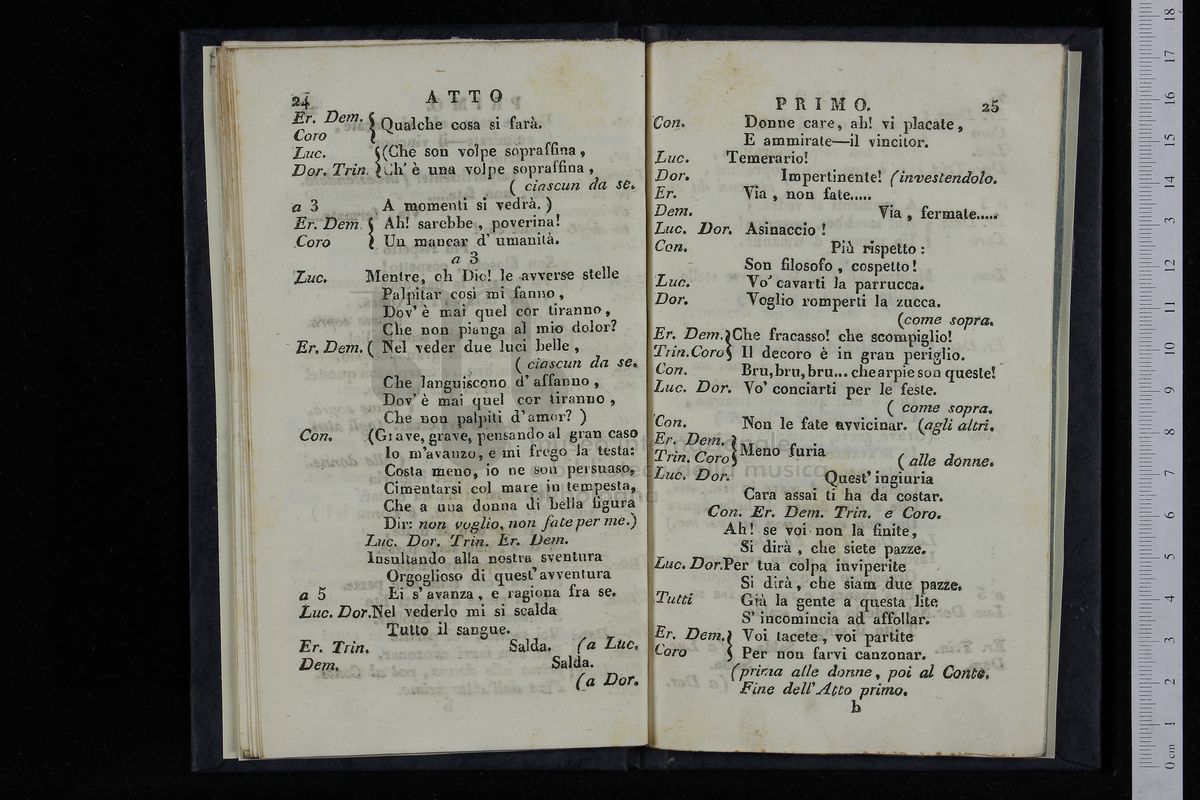 24 ATTO
Er. Dem. Coro { Qualche cosa si farà.
Luc. {(Che son volpe sopraffina,
Dor. Trin. {Ch' è una volpe sopraffina,
( ciascun da se.
a 3 A momenti si vedrà. )
Er. Dem. { Ah! sarebbe, poverina!
Coro { Un mancar d' umanità.
a 3
Luc. Mentre, oh Dio! le avverse stelle
Palpitar così mi fanno,
Dov' è mai quel cor tiranno,
Che non pianga al mio dolor?
Er. Dem. ( Nel veder due luci belle,
( ciascun da se.
Che languiscono d' affanno,
Dov' è mai quel cor tiranno,
Che non palpiti d' amor? )
Con. (Grave, grave, pensando al gran caso
Io m'avanzo, e mi frego la testa:
Costa meno, io ne son persuaso,
Cimentarsi col mare in tempesta,
Che a una donna di bella figura
Dir: non voglio, non fate per me.)
Luc. Dor. Trin. Er. Dem.
Insultando alla nostra sventura
Orgoglioso di quest' avventura
a 5 Ei s' avanza, e ragiona fra se.
Luc. Dor. Nel vederlo mi si scalda
Tutto il sangue.
Er. Trin. Salda. (a Luc.
Dem. Salda.
(a Dor.
PRIMO. 25
Con. Donne care, ah! vi placate,
E ammirate—il vincitor.
Luc. Temerario!
Dor. Impertinente! (investendolo.
Er. Via, non fate.....
Dem. Via, fermate.....
Luc. Dor. Asinaccio!
Con. Più rispetto:
Son filosofo, cospetto!
Luc. Vo' cavarti la parrucca.
Dor. Voglio romperti la zucca.
(come sopra.
Er. Dem. } Che fracasso! che scompiglio!
Trin. Coro } Il decoro è in gran periglio.
Con. Bru, bru, bru... che arpie son queste!
Luc. Dor. Vo' conciarti per le feste.
( come sopra.
Con. Non le fate avvicinar. (agli altri.
Er. Dem. Trin. Coro } Meno furia
( alle donne.
Luc. Dor. Quest' ingiuria
Cara assai ti ha da costar.
Con. Er. Dem. Trin. e Coro.
Ah! se voi non la finite,
Si dirà, che siete pazze.
Luc. Dor. Per tua colpa inviperite
Si dirà, che siam due pazze.
Tutti Già la gente a questa lite
S' incomincia ad affollar.
Er. Dem. } Voi tacete, voi partite
Coro } Per non farvi canzonar.
(prima alle donne, poi al Conte.
Fine dell' Atto primo.
b
museo internazionale
biblioteca della musica
di bologna
0 cm 1 2 3 4 5 6 7 8 9 10 11 12 13 14 15 16 17 18